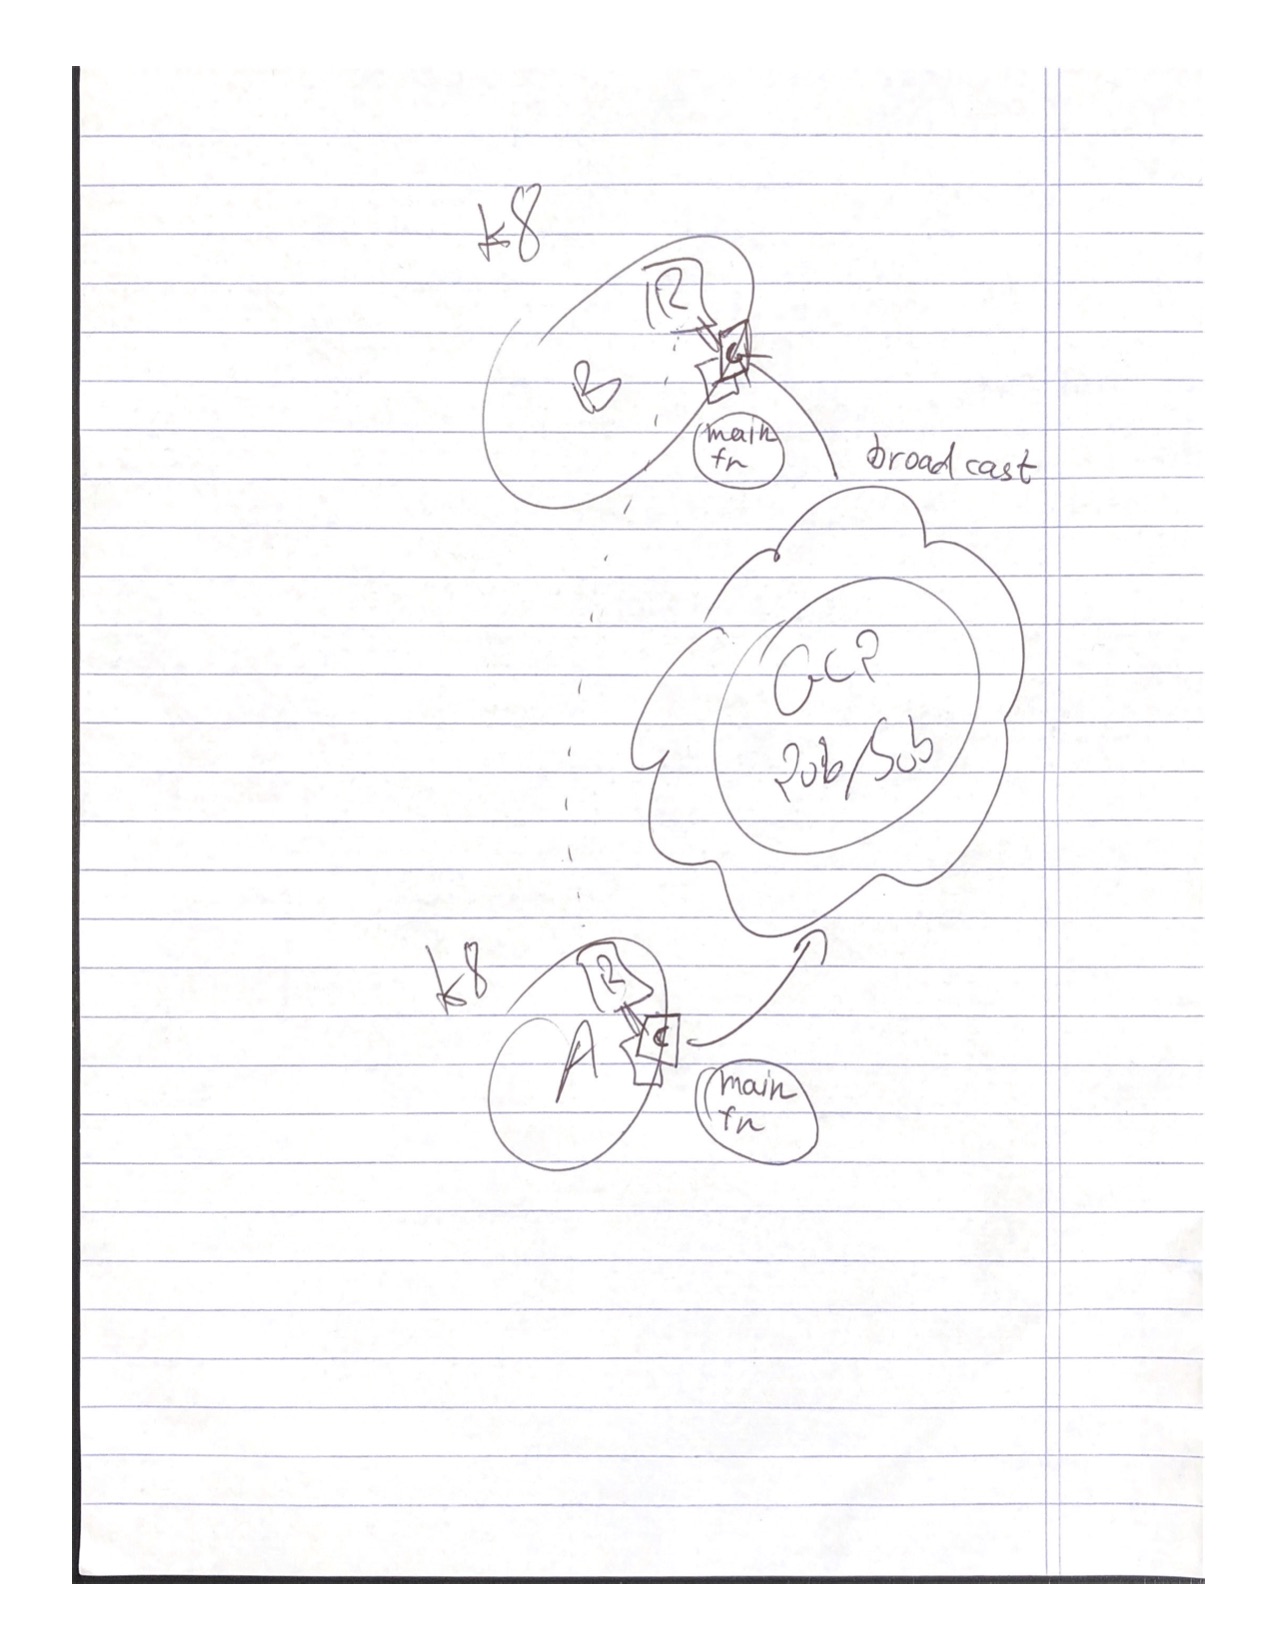 k8
R
C
B
main
fn
broadcast
GCP
Pub/Sub
k8
R
C
A
main
fn